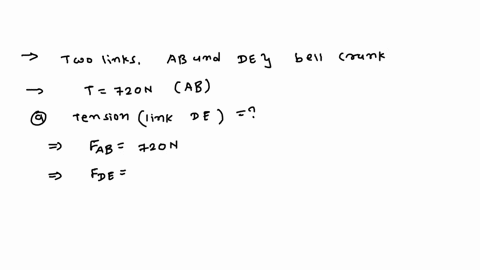 → Two links. AB und DE ʒ bell crank
→ T = 720N (AB)
ⓐ Tension (link DE) = ?
⇒ F_AB = 720N
⇒ F_DE =